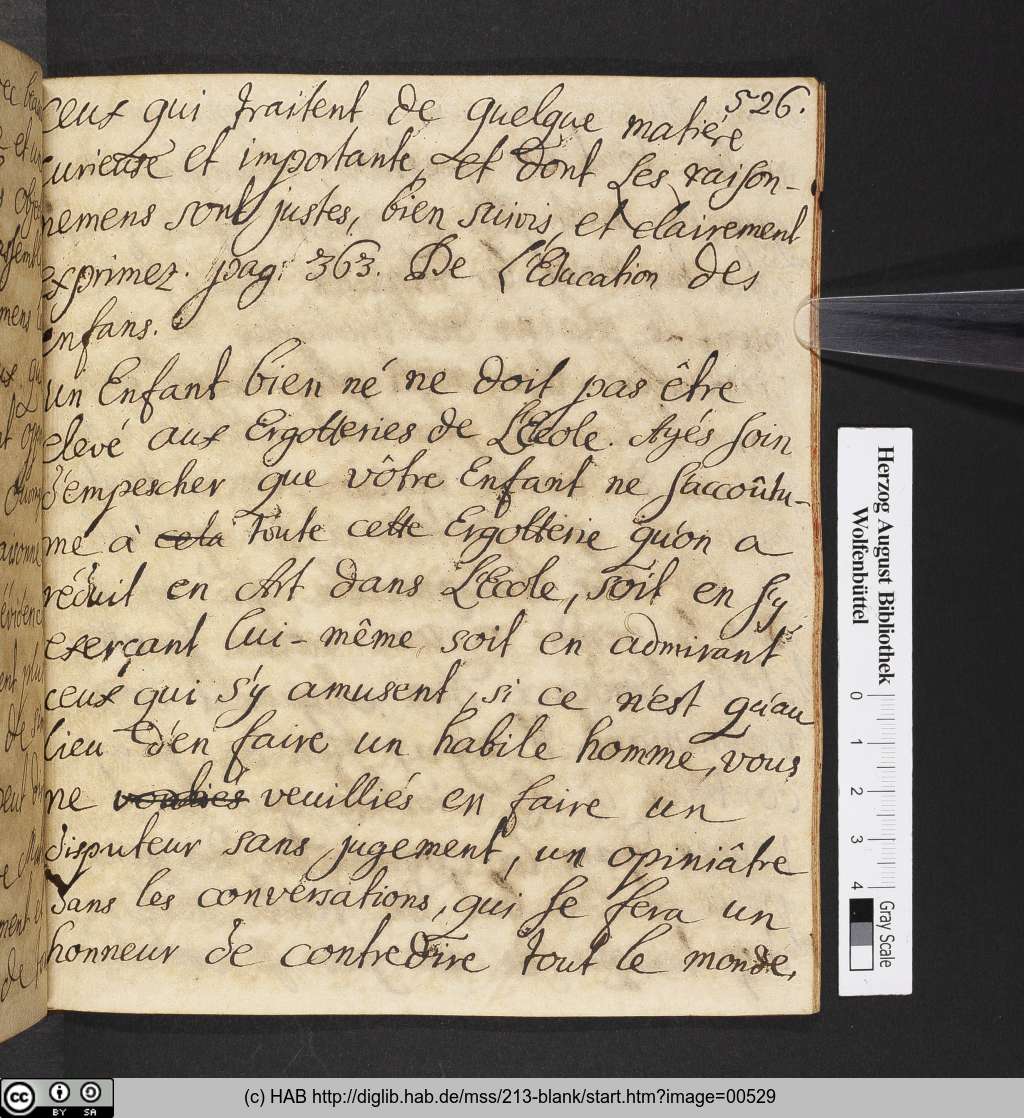 526.
ceux qui traitent de quelque matiére
curieuse et importante, et dont les raison-
nemens sont justes, bien suivis, et clairement
exprimez. pag: 363. De l'Education des
enfans.
un Enfant bien né ne doit pas être
elevé aux Ergotteries de L'Ecole. Ayés soin
d'empescher que vôtre Enfant ne s'accoûtu-
me à cela toute cette Ergotterie qu'on a
réduit en Art dans L'Ecole, soit en s'y
exerçant lui-même soit en admirant
ceux qui s'y amusent, si ce n'est qu'au
lieu d'en faire un habile homme, vous
ne vouliés veuilliés en faire un
disputeur sans jugement, un opiniâtre
dans les conversations, qui se fera un
honneur de contredire tout le monde,
Herzog August Bibliothek
Wolfenbüttel
0 1 2 3 4
Gray Scale
CC BY SA
(c) HAB http://diglib.hab.de/mss/213-blank/start.htm?image=00529